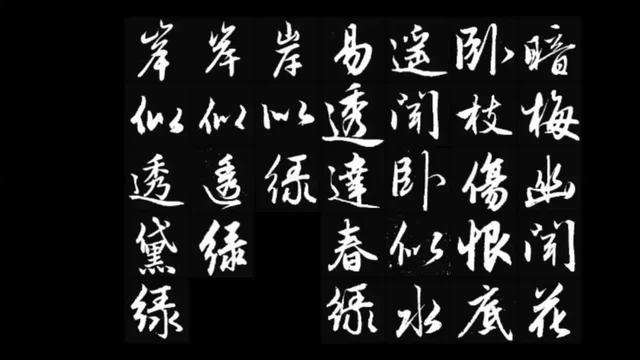 暗梅幽聞花
卧枝傷恨底
遥聞卧似水
易透達春绿
岸似绿
岸似透绿
岸似透黛绿